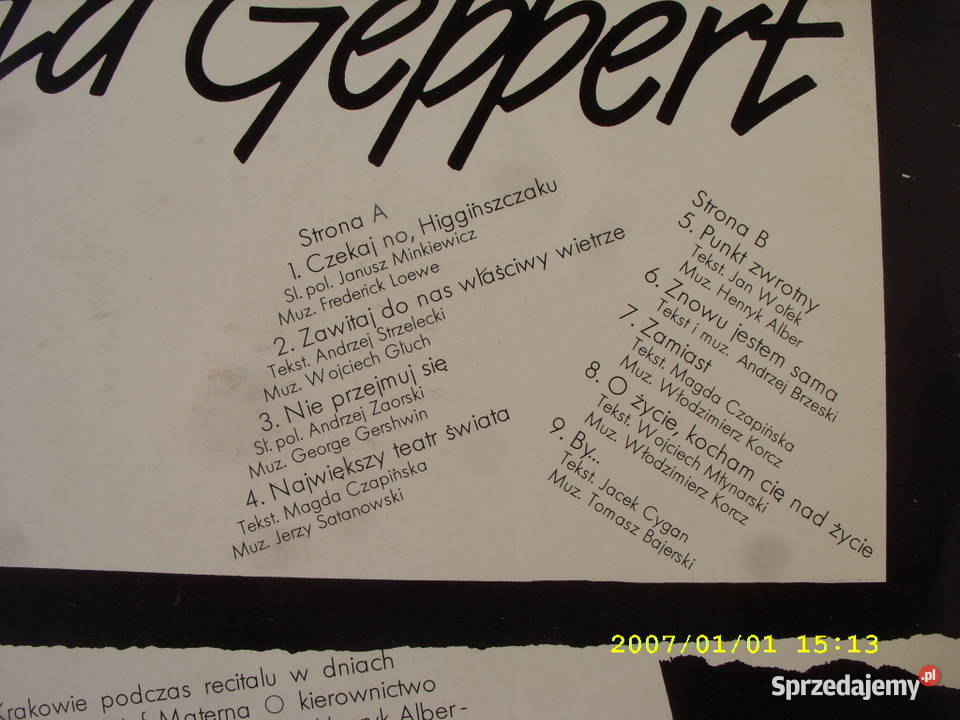 Geppert
Strona A
1. Czekaj no, Higgińszczaku
Sł. pol. Janusz Minkiewicz
Muz. Frederick Loewe
2. Zawitaj do nas właściwy wietrze
Tekst. Andrzej Strzelecki
Muz. Wojciech Głuch
3. Nie przejmuj się
Sł. pol. Andrzej Zaorski
Muz. George Gershwin
4. Największy teatr świata
Tekst. Magda Czapińska
Muz. Jerzy Satanowski
Strona B
5. Punkt zwrotny
Tekst. Jan Wołek
Muz. Henryk Alber
6. Znowu jestem sama
Tekst i muz. Andrzej Brzeski
7. Zamiast
Tekst. Magda Czapińska
Muz. Włodzimierz Korcz
8. O życie, kocham cię nad życie
Tekst. Wojciech Młynarski
Muz. Włodzimierz Korcz
9. By...
Tekst. Jacek Cygan
Muz. Tomasz Bajerski
2007/01/01 15:13
Krakowie podczas recitalu w dniach
Materna O kierownictwo
Alber-
Sprzedajemy.pl